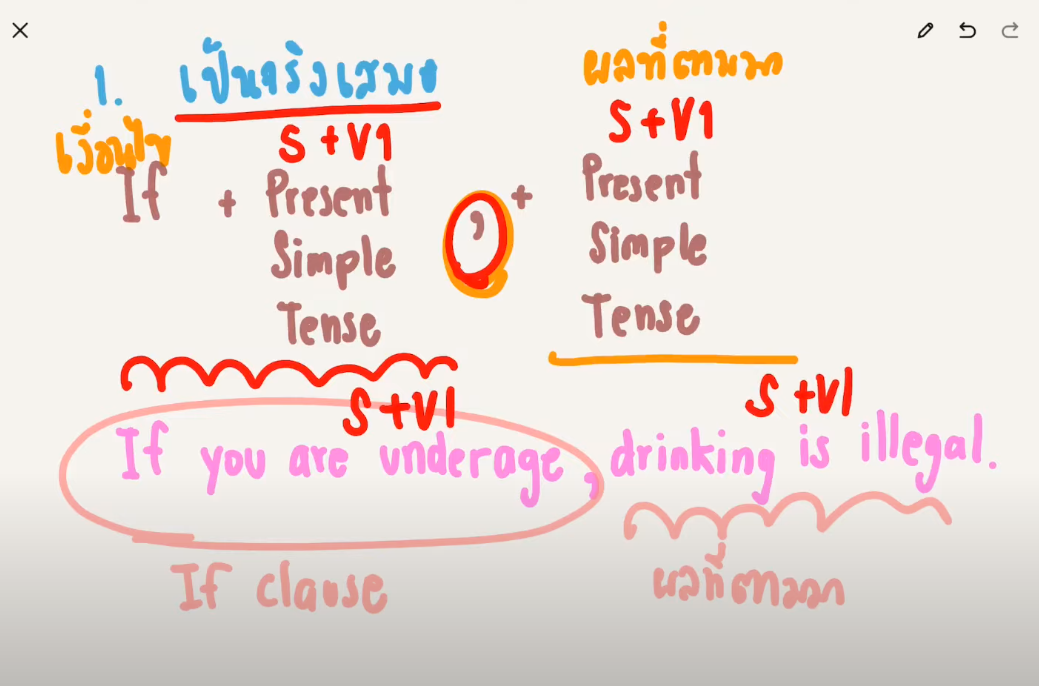 1. เป็นจริงเสมอ
ผลที่ตามมา
เงื่อนไข
S + V1
S + V1
If + Present Simple Tense , + Present Simple Tense
S + V1
S + V1
If you are underage, drinking is illegal.
If clause
ผลที่ตามมา